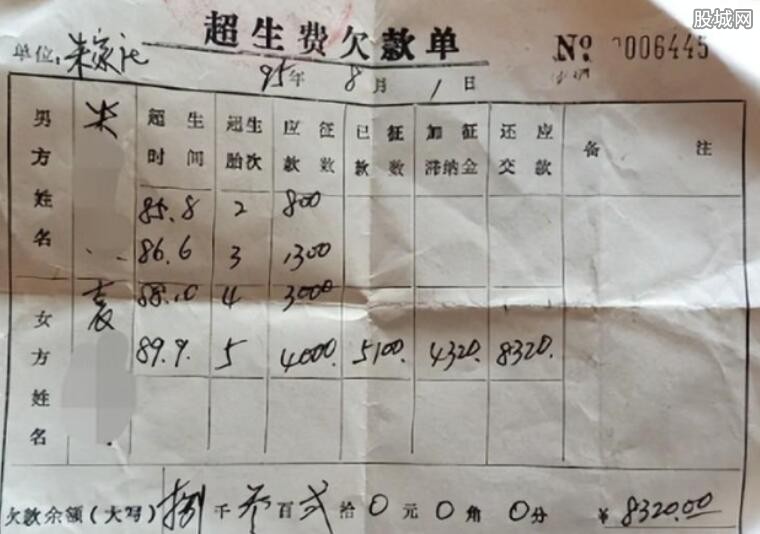 股城网
超生费欠款单
单位: 朱家
№ 0006445
95年 8月 1日
男方姓名 朱
超生时间 超生胎次 应征款数 已征款数 加征滞纳金 还应交款 备注
85.8 2 800
86.6 3 1300
女方姓名 袁
88.10 4 3000
89.9. 5 4000. 5100. 4320. 8320.
欠款余额(大写) 捌千叁百弍拾0元0角0分 ¥ 8320.00